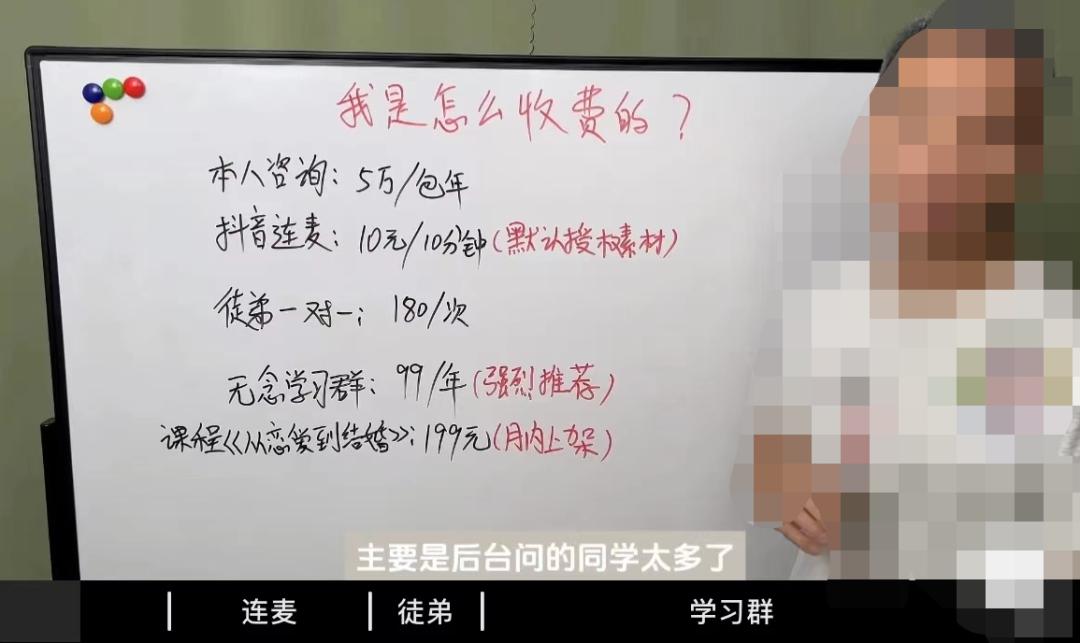 我是怎么收费的？
本人咨询：5万/包年
抖音连麦：10元/10分钟（默认授权素材）
徒弟一对一：180/次
无念学习群：99/年（强烈推荐）
课程《从恋爱到结婚》：199元（月内上架）
主要是后台问的同学太多了
连麦
徒弟
学习群